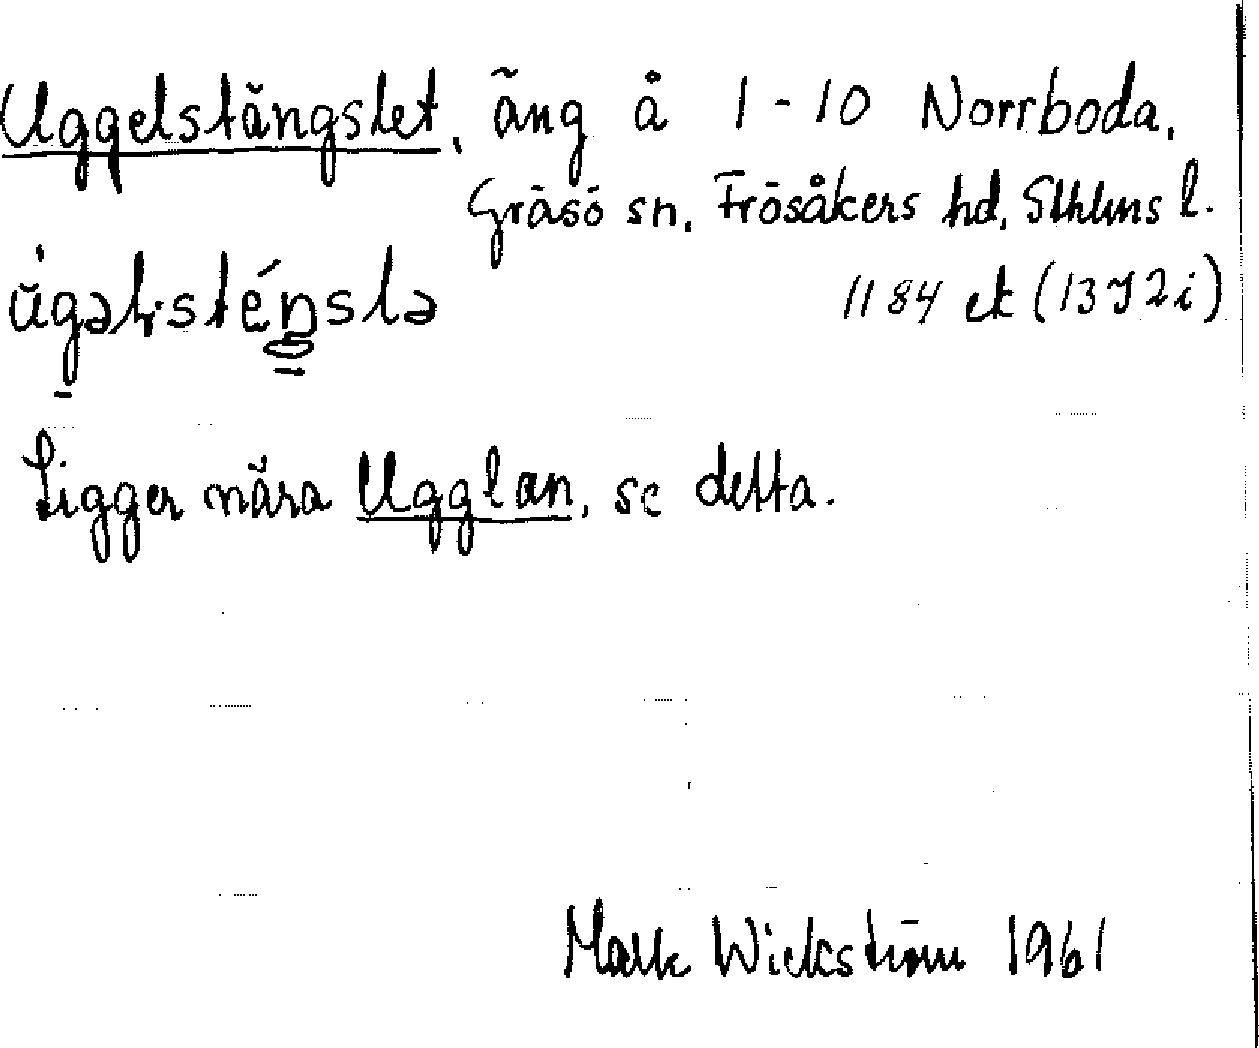 Uggelstängslet, äng å 1-10 Norrboda,
Gräsö sn, Frösåkers hd, Sthlms l.
1184 ek (13 I 2 i)
Ligger nära Ugglan, se detta.
Wickström 1961